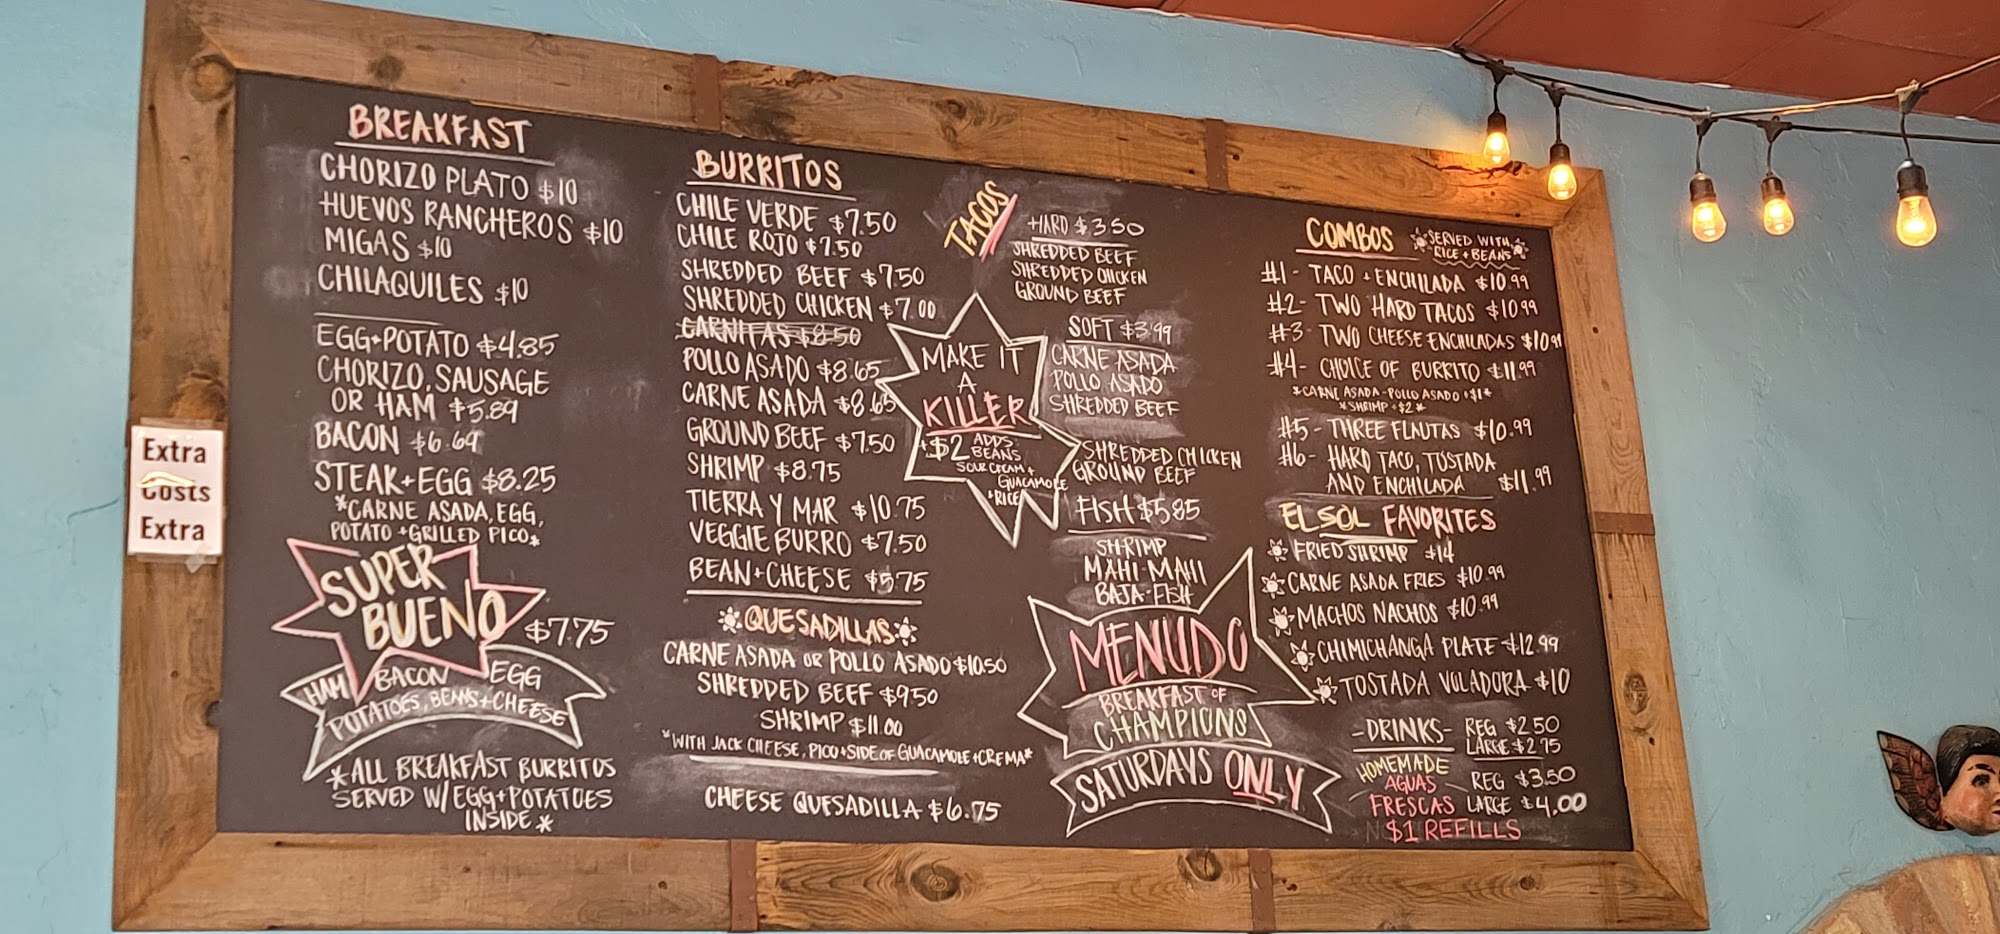 BREAKFAST
CHORIZO PLATO $10
HUEVOS RANCHEROS $10
MIGAS $10
CHILAQUILES $10
EGG+POTATO $4.85
CHORIZO, SAUSAGE
OR HAM $5.89
BACON $6.69
STEAK+EGG $8.25
*CARNE ASADA, EGG,
POTATO + GRILLED PICO*
SUPER
BUENO
$7.75
HAM BACON EGG
POTATOES, BEANS+CHEESE
*ALL BREAKFAST BURRITOS
SERVED W/EGG+POTATOES
INSIDE*
Extra
Costs
Extra
BURRITOS
CHILE VERDE $7.50
CHILE ROJO $7.50
SHREDDED BEEF $7.50
SHREDDED CHICKEN $7.00
CARNITAS $8.50
POLLO ASADO $8.65
CARNE ASADA $8.65
GROUND BEEF $7.50
SHRIMP $8.75
TIERRA Y MAR $10.75
VEGGIE BURRO $7.50
BEAN+CHEESE $5.75
QUESADILLAS
CARNE ASADA OR POLLO ASADO $10.50
SHREDDED BEEF $9.50
SHRIMP $11.00
*WITH JACK CHEESE, PICO+SIDE OF GUACAMOLE+CREMA*
CHEESE QUESADILLA $6.75
TACOS
HARD $3.50
SHREDDED BEEF
SHREDDED CHICKEN
GROUND BEEF
SOFT $3.99
CARNE ASADA
POLLO ASADO
SHREDDED BEEF
SHREDDED CHICKEN
GROUND BEEF
FISH $5.85
SHRIMP
MAHI-MAHI
BAJA-FISH
MAKE IT
A
KILLER
+$2 ADDS
BEANS
SOUR CREAM +
GUACAMOLE
+ RICE
MENUDO
BREAKFAST OF
CHAMPIONS
SATURDAYS ONLY
COMBOS
SERVED WITH
RICE + BEANS
#1 - TACO + ENCHILADA $10.99
#2 - TWO HARD TACOS $10.99
#3 - TWO CHEESE ENCHILADAS $10.99
#4 - CHOICE OF BURRITO $11.99
*CARNE ASADA - POLLO ASADO +$1*
*SHRIMP +$2*
#5 - THREE FLAUTAS $10.99
#6 - HARD TACO, TOSTADA
AND ENCHILADA $11.99
EL SOL FAVORITES
FRIED SHRIMP $14
CARNE ASADA FRIES $10.99
MACHOS NACHOS $10.99
CHIMICHANGA PLATE $12.99
TOSTADA VOLADORA $10
-DRINKS- REG $2.50
LARGE $2.75
HOMEMADE
AGUAS
FRESCAS
REG $3.50
LARGE $4.00
$1 REFILLS